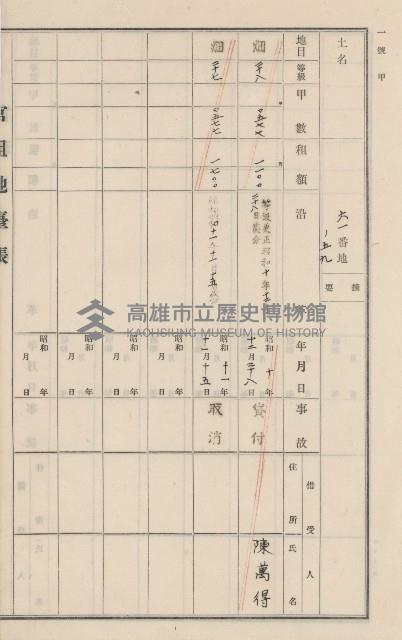 一號甲
土名
六一番地
ノ五九
摘要
地目
等級
甲數
租額
沿革
年月日
事故
借受人
住所
氏名
畑
二十八
〇五七七
一一〇〇
等級更正昭和十年十二月
二十八日貸付
昭和十年
十二月二十八日
貸付
陳萬得
畑
二十七
〇五七七
一七〇〇
昭和十一年
十一月十五日
取消
昭和 年
月 日
昭和 年
月 日
昭和 年
月 日
昭和 年
月 日
官租地臺帳
高雄市立歷史博物館
KAOHSIUNG MUSEUM OF HISTORY